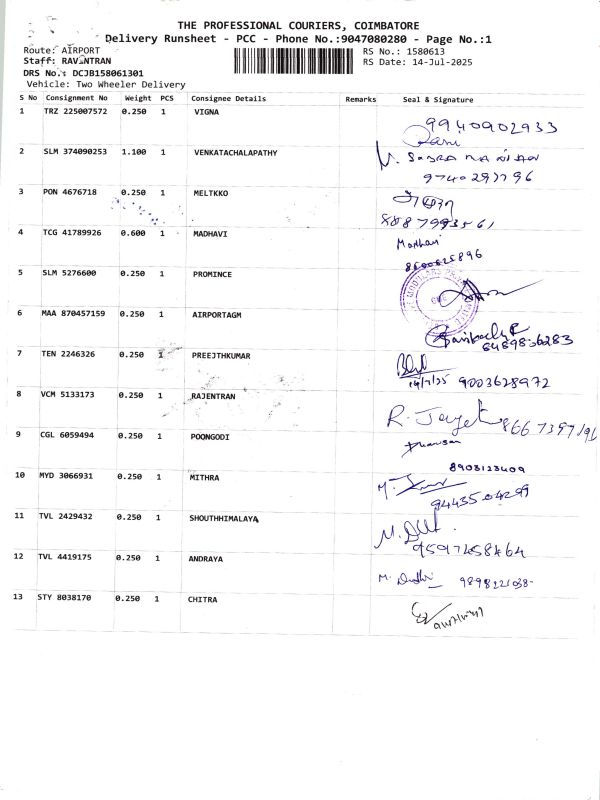 THE PROFESSIONAL COURIERS, COIMBATORE
Delivery Runsheet - PCC - Phone No.:9047080280 - Page No.:1
Route: AIRPORT
RS No.: 1580613
Staff: RAVANTRAN
RS Date: 14-Jul-2025
DRS No.: DCJB158061301
Vehicle: Two Wheeler Delivery
S No Consignment No Weight PCS Consignee Details Remarks Seal & Signature
1 TRZ 225007572 0.250 1 VIGNA
9940902933
Rani
2 SLM 374090253 1.100 1 VENKATACHALAPATHY
9740297796
3 PON 4676718 0.250 1 MELTKKO
4 TCG 41789926 0.600 1 MADHAVI
Madhavi
5 SLM 5276600 0.250 1 PROMINCE
6 MAA 870457159 0.250 1 AIRPORTAGM
7 TEN 2246326 0.250 1 PREEJTHKUMAR
14/7/25 9003628972
8 VCM 5133173 0.250 1 RAJENTRAN
9 CGL 6059494 0.250 1 POONGODI
8903123409
10 MYD 3066931 0.250 1 MITHRA
9443504299
11 TVL 2429432 0.250 1 SHOUTHHIMALAYA
9597458464
12 TVL 4419175 0.250 1 ANDRAYA
13 STY 8038170 0.250 1 CHITRA